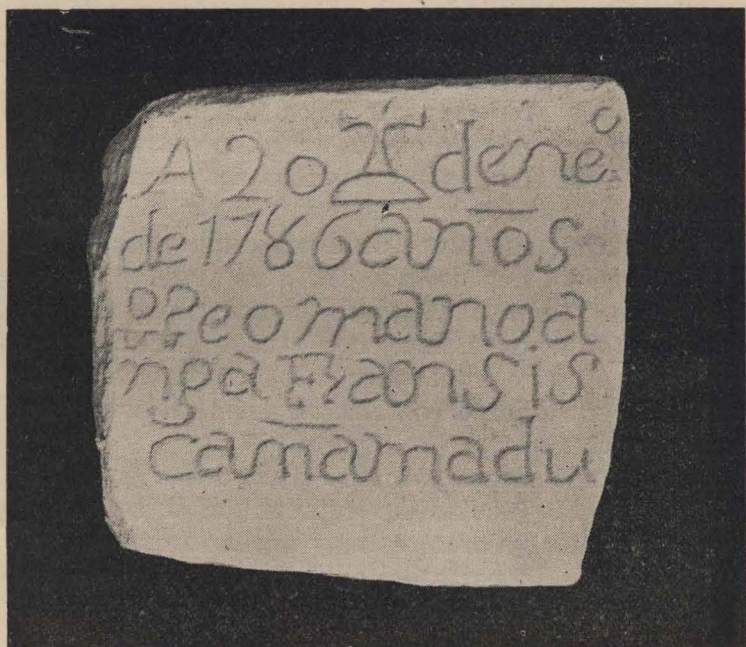 A 20 de eneº
de 1786 anos
eomanoa
nga Fransis
camamadu